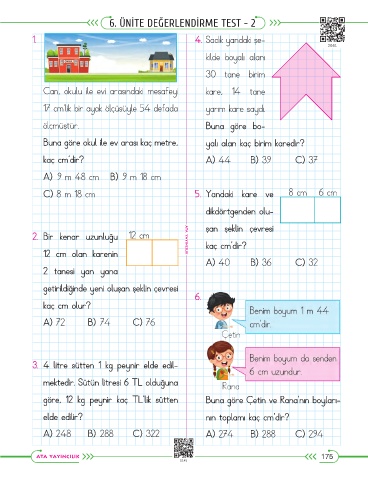 6. ÜNİTE DEĞERLENDİRME TEST - 2
1.
Can, okulu ile evi arasındaki mesafeyi
17 cm'lik bir ayak ölçüsüyle 54 defada
ölçmüştür.
Buna göre okul ile ev arası kaç metre,
kaç cm'dir?
A) 9 m 48 cm B) 9 m 18 cm
C) 8 m 18 cm
2. Bir kenar uzunluğu
12 cm olan karenin
2 tanesi yan yana
getirildiğinde yeni oluşan şeklin çevresi
kaç cm olur?
12 cm
A) 72 B) 74 C) 76
3. 4 litre sütten 1 kg peynir elde edil-
mektedir. Sütün litresi 6 TL olduğuna
göre, 12 kg peynir kaç TL'lik sütten
elde edilir?
A) 248 B) 288 C) 322
4. Sadık yandaki şe-
kilde boyalı alanı
30 tane birim
kare, 14 tane
yarım kare saydı.
Buna göre bo-
yalı alan kaç birim karedir?
A) 44 B) 39 C) 37
5. Yandaki kare ve
dikdörtgenden olu-
şan şeklin çevresi
kaç cm'dir?
8 cm 6 cm
A) 40 B) 36 C) 32
6.
Benim boyum 1 m 44
cm'dir.
Çetin
Benim boyum da senden
6 cm uzundur.
Rana
Buna göre Çetin ve Rana'nın boyları-
nın toplamı kaç cm'dir?
A) 274 B) 288 C) 294
ATA YAYINCILIK
175